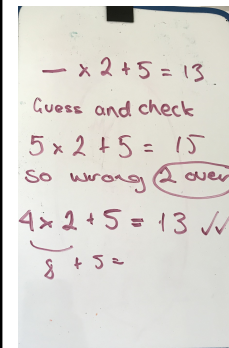 — x 2 + 5 = 13
Guess and check
5 x 2 + 5 = 15
So wrong 2 over
4 x 2 + 5 = 13 ✓✓
8 + 5 =